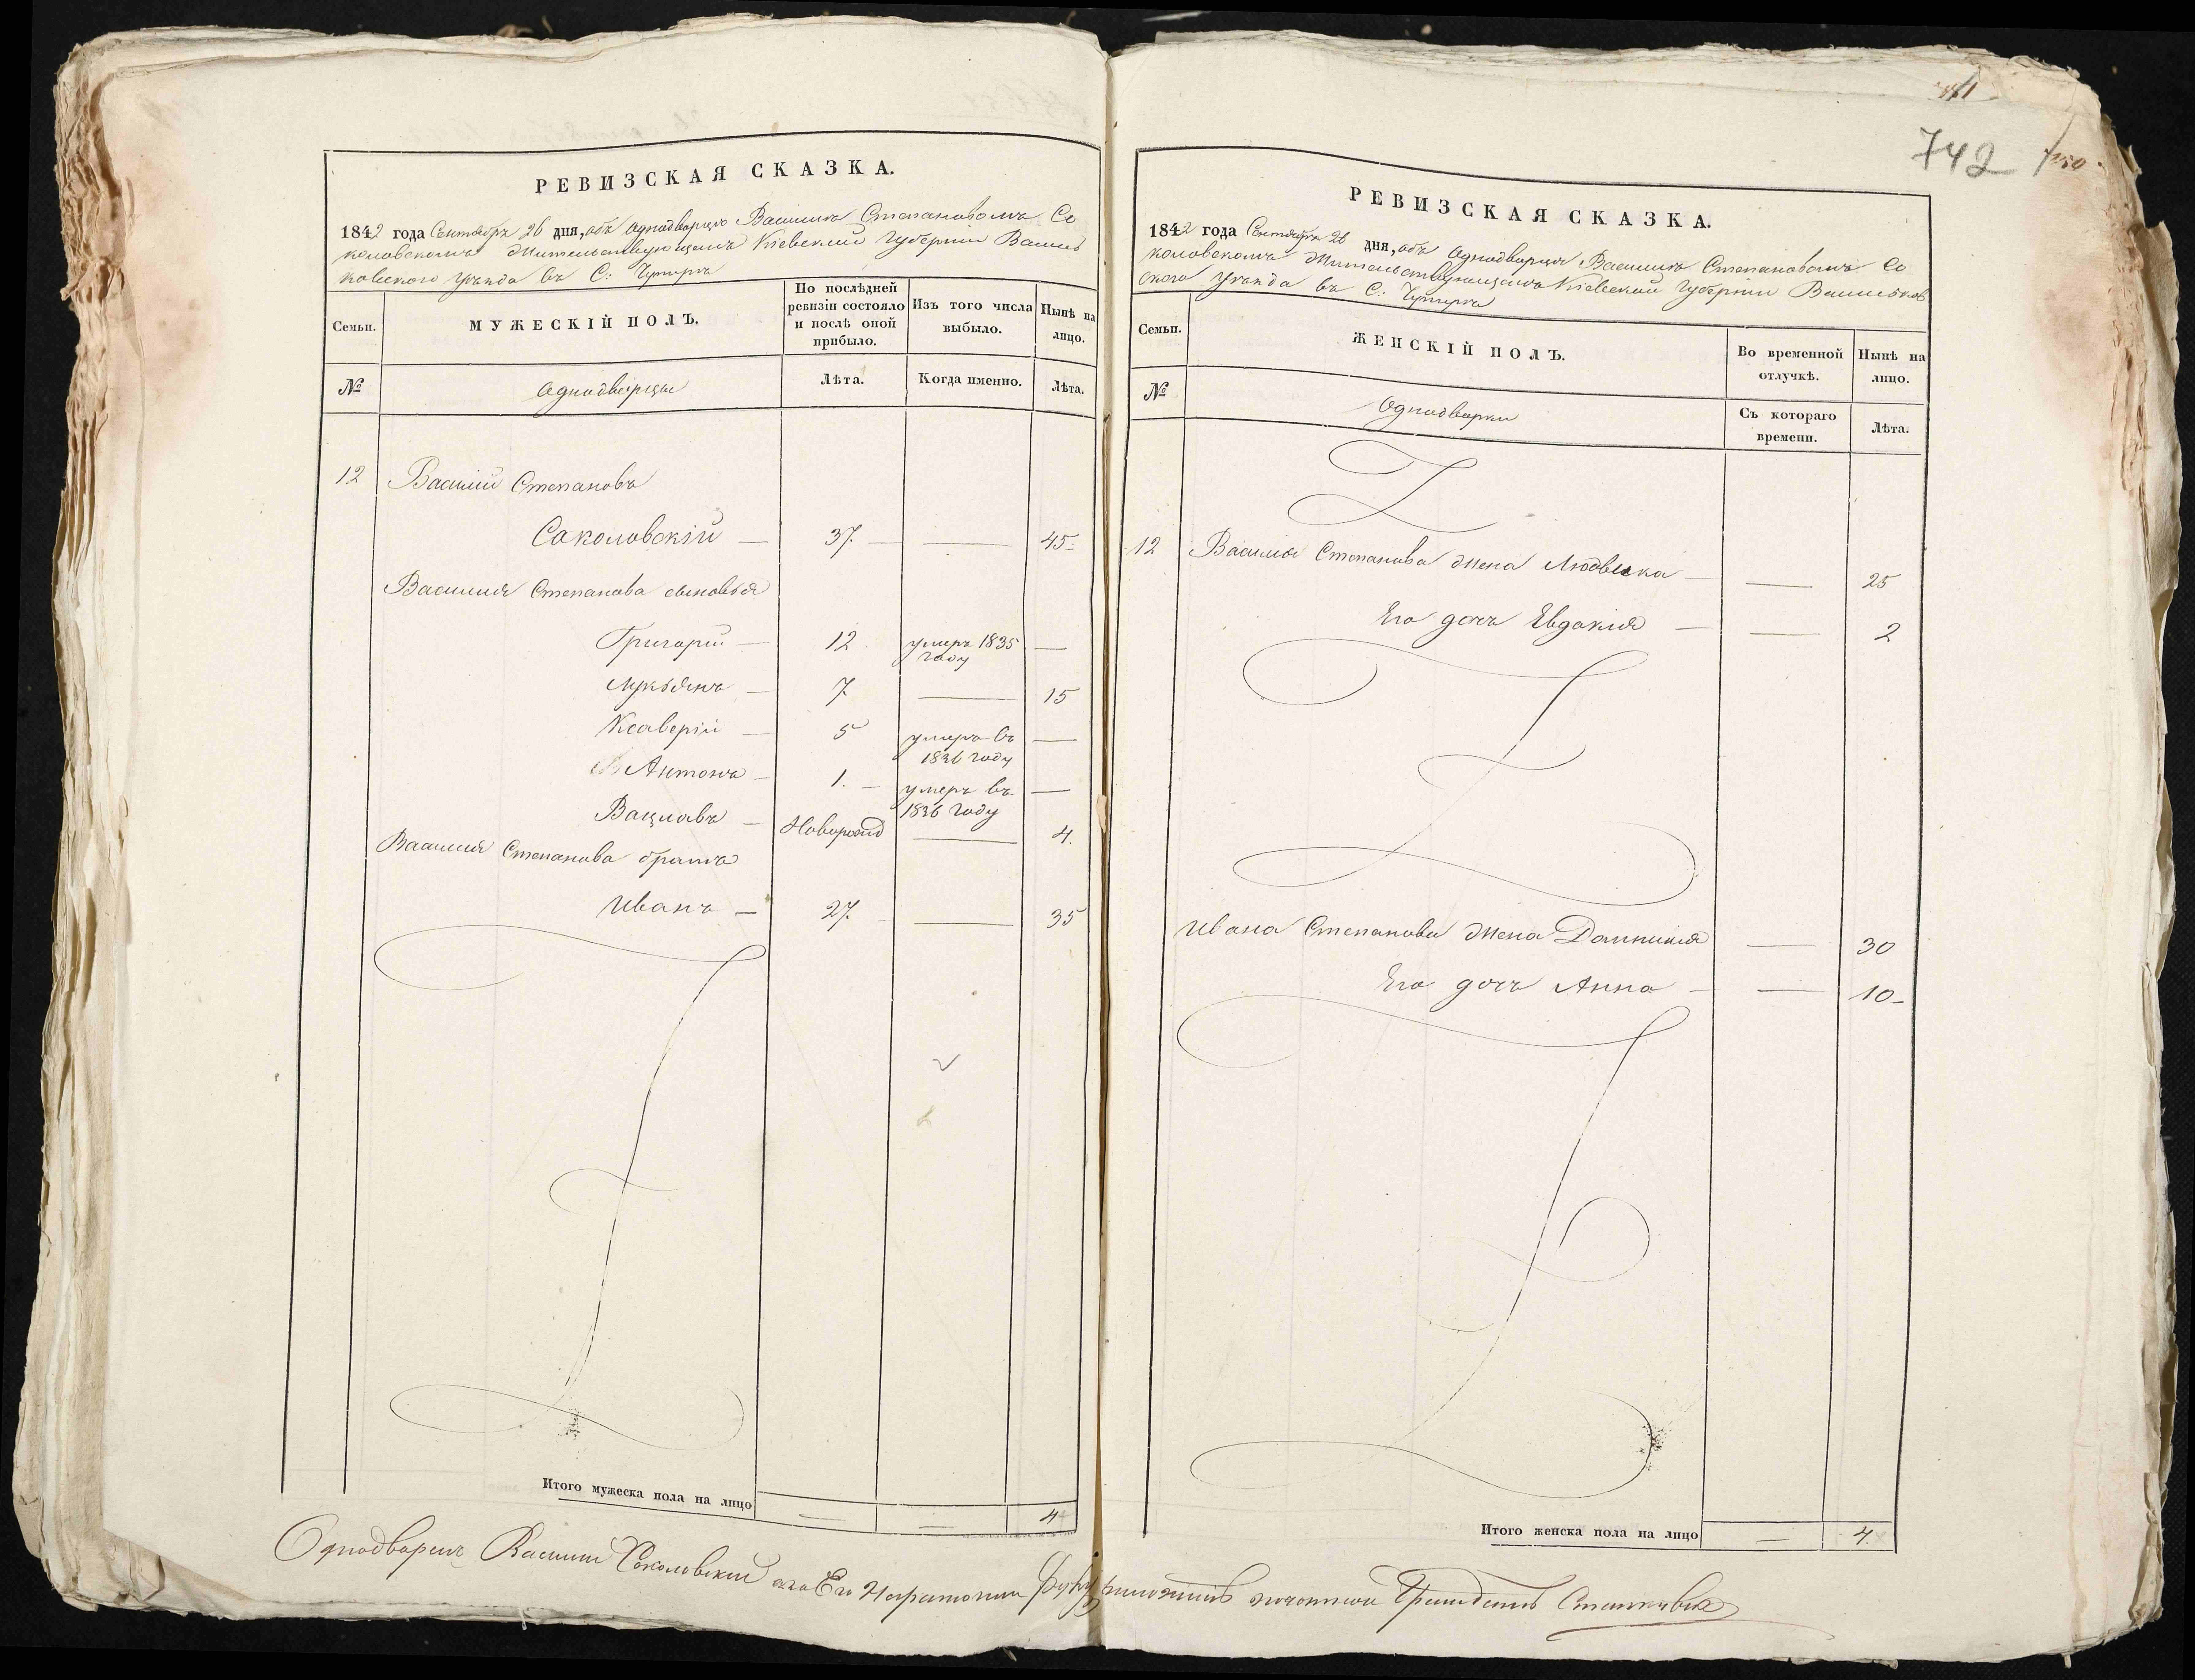 РЕВИЗСКАЯ СКАЗКА.
1842 года Сентября 26 дня, объ Однодворцѣ Васишлѣ Степановомъ Со
коловскомъ Жительствующемъ Кіевской Губерніи Василь
ковского уѣзда въ С:
Семьи.
МУЖЕСКІЙ ПОЛЪ.
По послѣдней
ревизіи состояло
и послѣ оной
прибыло.
Изъ того числа
выбыло.
Нынѣ на
лицо.
№
Однодворцы
Лѣта.
Когда именно.
Лѣта.
12 Василій Степановъ
Соколовскій — 37. — 45
Василия Степанова сыновья
Григорій — 12 умеръ 1835 —
году
Лукьянъ — 7. — 15
Ксаверій — 5 умеръ въ —
1836 году
Антонъ — 1. — умеръ въ —
1836 году
Вацлавъ — Новорожд — 4.
Василия Степанова братъ
Иванъ — 27. — 35
Итого мужеска пола на лицо — — 4
11
742
750
РЕВИЗСКАЯ СКАЗКА.
1842 года Сентября 26 дня, объ Однодворцѣ Василиѣ Степановомъ Со
коловскомъ Жительствующемъ Кіевской Губерніи Васильков
ского уѣзда въ С:
Семьи.
ЖЕНСКІЙ ПОЛЪ.
Во временной
отлучкѣ.
Нынѣ на
лицо.
№
Однодворки
Съ котораго
времени.
Лѣта.
12 Василія Степанова жена Людвика — — 25
Его дочь Евдокия — — 2
Ивана Степанова жена Домникия — 30
Его дочь Анна — — 10
Итого женска пола на лицо — 4.
Однодворецъ Василий Соколовский а за Его Неграмотний